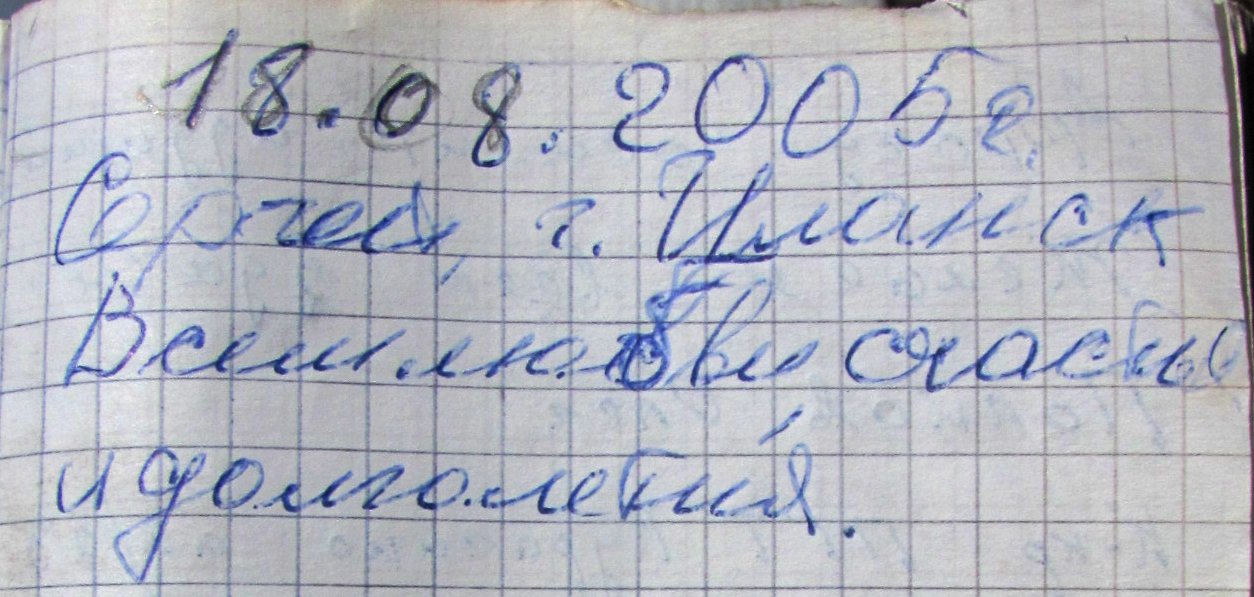 18.08.2005г.
Сергей, г. Иланск
Всем любви счастья
и долголетия.